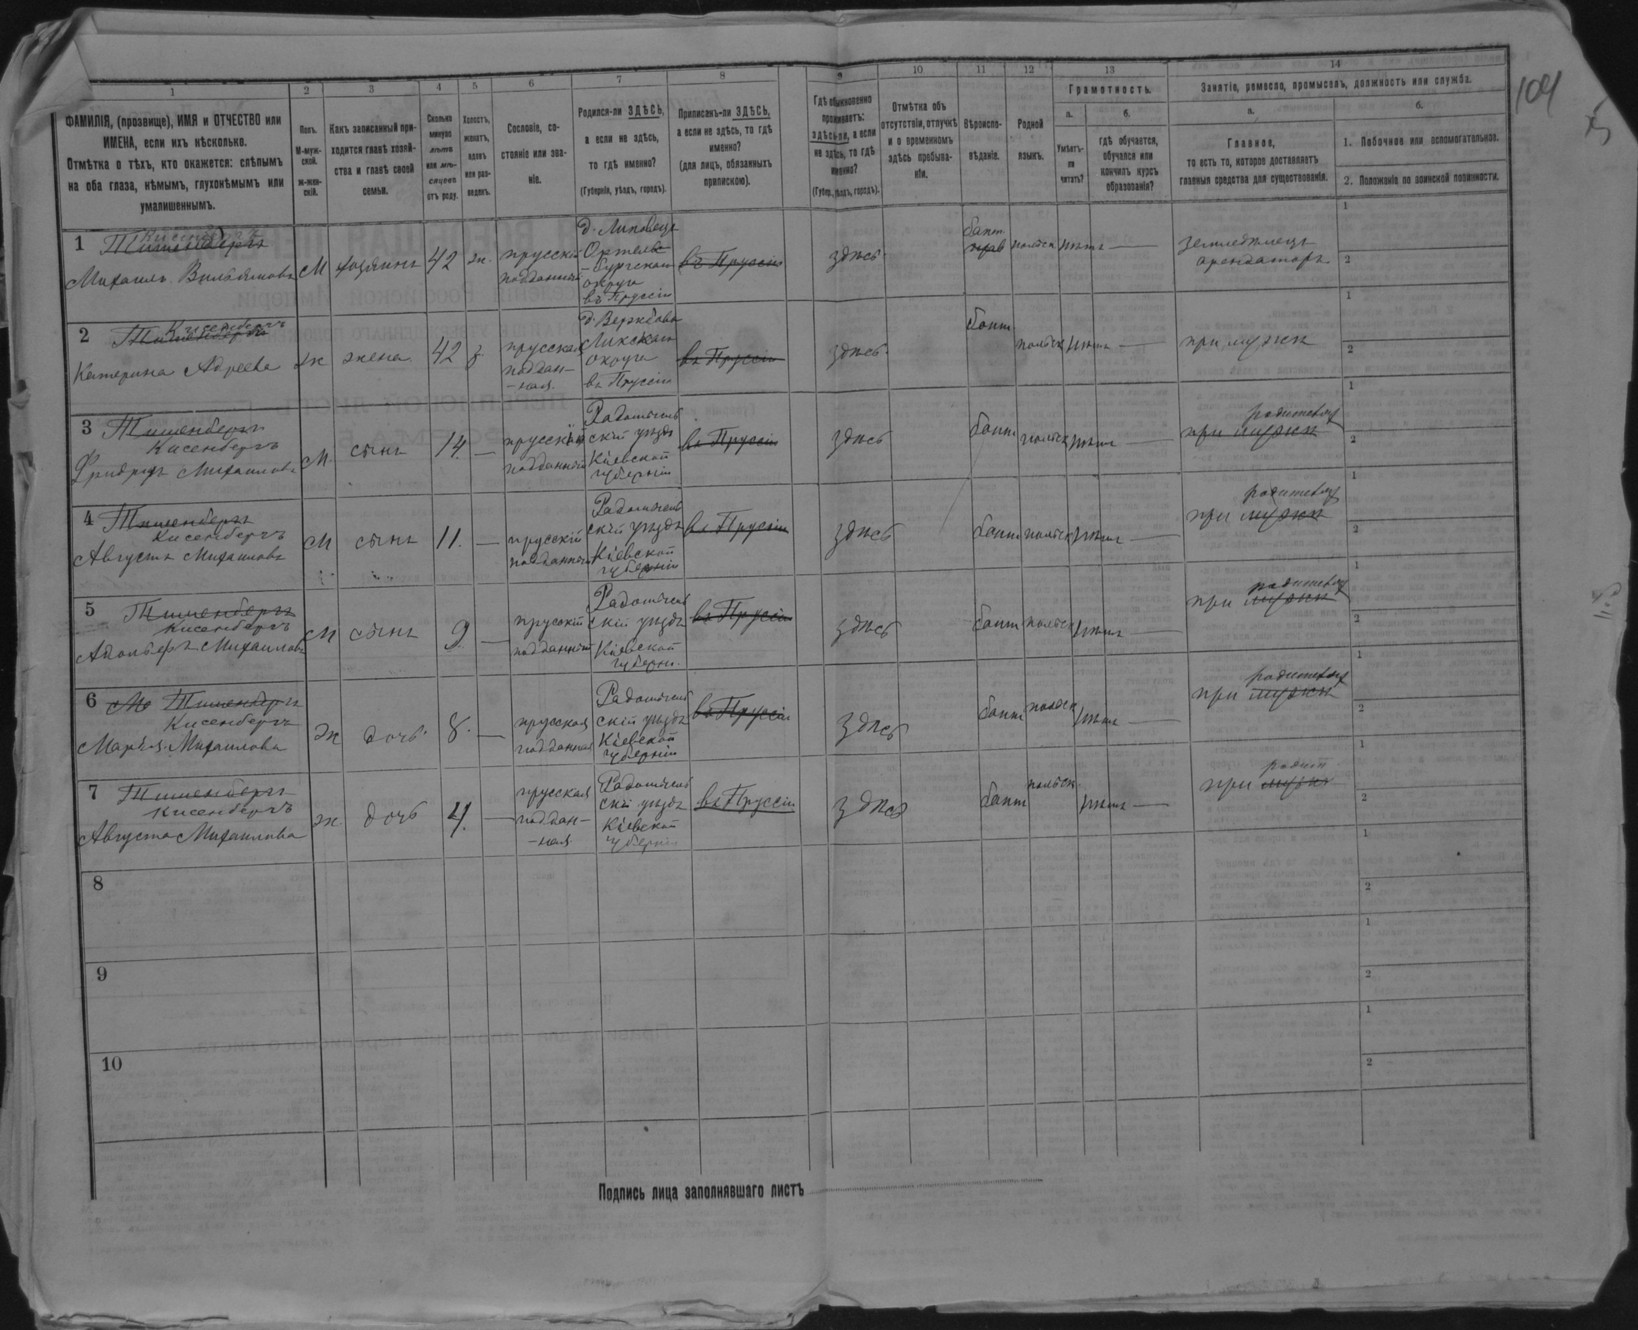 104
1 2 3 4 5 6 7 8 9 10 11 12 13 14
ФАМИЛІЯ, (прозвище), ИМЯ и ОТЧЕСТВО или
ИМЕНА, если ихъ нѣсколько.
Отмѣтка о тѣхъ, кто окажется: слѣпымъ
на оба глаза, нѣмымъ, глухонѣмымъ или
умалишеннымъ.
Полъ.
М-муж-
ской.
ж-жен-
скій.
Какъ записанный при-
ходится главѣ хозяй-
ства и главѣ своей
семьи.
Сколько
минуло
лѣтъ
или мѣ-
сяцевъ
отъ роду.
Холостъ,
женатъ,
вдовъ
или раз-
веденъ.
Сословіе, со-
стояніе или зва-
ніе.
Родился-ли ЗДѢСЬ,
а если не здѣсь,
то гдѣ именно?
(Губернія, уѣздъ, городъ).
Приписанъ-ли ЗДѢСЬ,
а если не здѣсь, то гдѣ
именно?
(для лицъ, обязанныхъ
припискою).
Гдѣ обыкновенно
проживаетъ:
здѣсь-ли, а если
не здѣсь, то гдѣ
именно?
(Губерн., уѣздъ, городъ).
Отмѣтка объ
отсутствіи, отлучкѣ
и о временномъ
здѣсь пребыва-
ніи.
Вѣроиспо-
вѣданіе.
Родной
языкъ.
Грамотность.
а.
Умѣетъ-
ли
читать?
б.
гдѣ обучается,
обучался или
кончилъ курсъ
образованія?
Занятіе, ремесло, промыселъ, должность или служба.
а.
Главное,
то есть то, которое доставляетъ
главныя средства для существованія.
б.
1. Побочное или вспомогательное.
2. Положеніе по воинской повинности.
1 Кисенбергъ
Михаилъ Вильгелмовъ М хозяинъ 42 ж. прусскій подданный
округа
въ Пруссіи
въ Пруссіи здѣсь бапт польск земледѣлецъ
арендаторъ
2 Кисенбергъ
Катерина ж жена 42 з прусская
поддан-
-ная
округа
въ Пруссіи
въ Пруссіи здѣсь бапт польск при мужѣ
3 Тишенбергъ
Кисенбергъ
Фридрихъ Михаиловъ М сынъ 14 — прусскій
подданный
Радомысль
скій уѣздъ
Кіевской
губерніи
въ Пруссіи здѣсь бапт польск — при мужѣ
4 Тишенбергъ
Кисенбергъ
Августъ Михаиловъ М сынъ 11. — прусскій
подданный
Радомысль
скій уѣздъ
Кіевской
губерніи
въ Пруссіи здѣсь бапт польск — при мужѣ
5 Тишенбергъ
Кисенбергъ
Адольфъ Михаиловъ М сынъ 9. — прусскій
подданный
Радомысль
скій уѣздъ
Кіевской
губерни.
въ Пруссіи здѣсь бапт польск — при мужѣ
6 Тишенбергъ
Кисенбергъ
Марья Михаилова ж дочь. 8. — прусская
подданная
Радомысль
скій уѣздъ
Кіевской
губерніи
въ Пруссіи здѣсь бапт польск — при мужѣ
7 Тишенбергъ
Кисенбергъ
Августа Михаилова ж. дочь 4. — прусская
поддан-
-ная
Радомысль
скій уѣздъ
Кіевской
губерніи
въ Пруссіи здѣсь бапт польск. — при мужѣ
8
9
10
Подпись лица заполнявшаго листъ